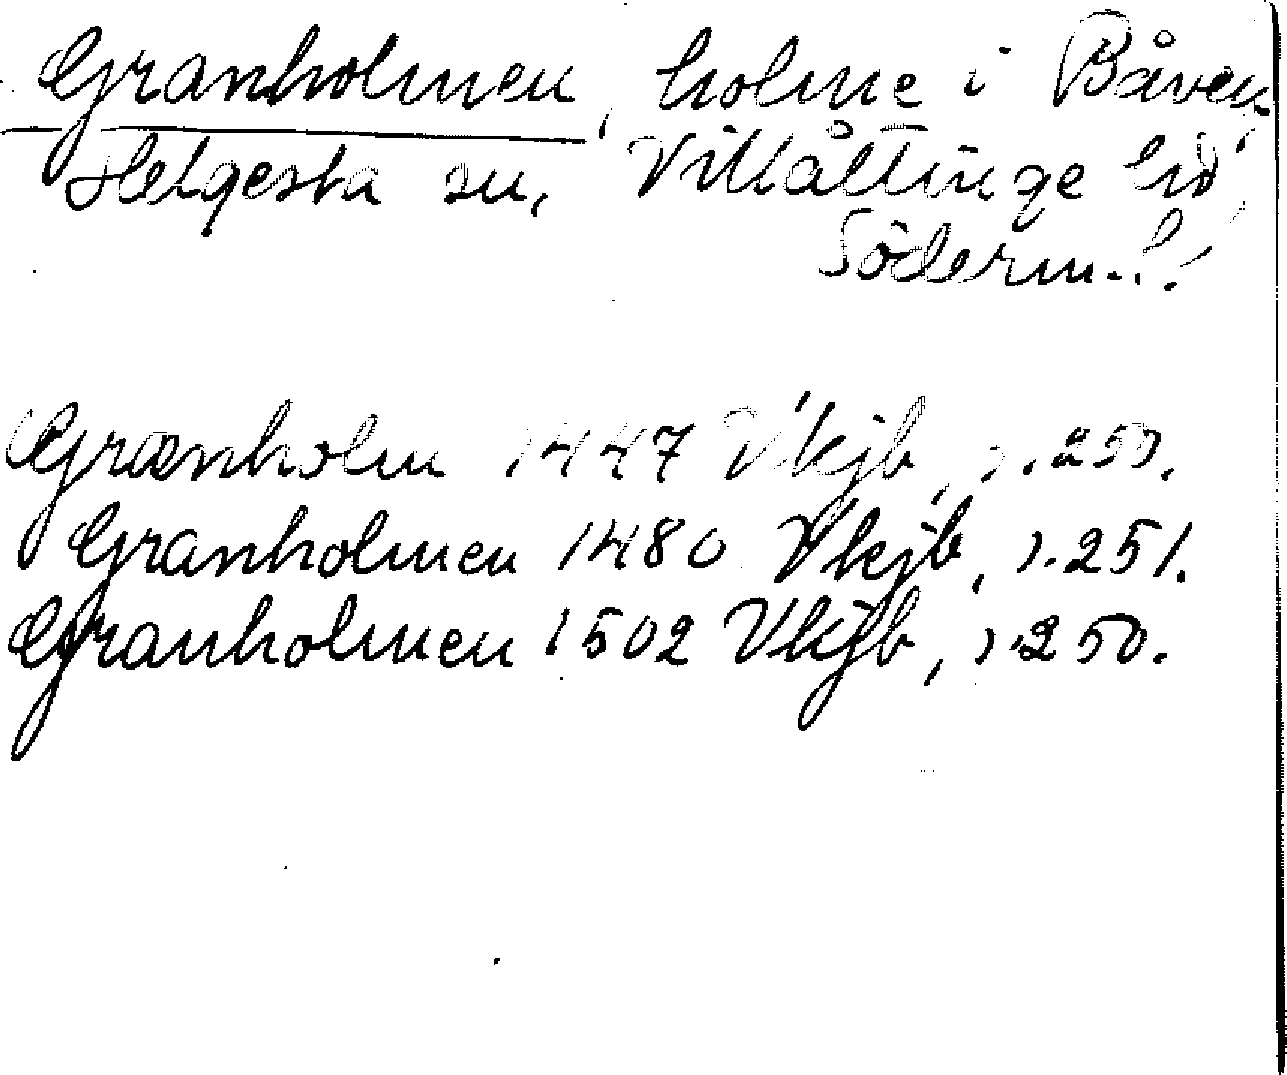 Granholmen, holme i Båven,
Helgesta sn, Villåttinge hd,
Söderm. l.
Grænholm 1447 Vkjb, s. 250.
Granholmen 1480 Vkjb, s. 251.
Granholmen 1502 Vkjb, s. 250.